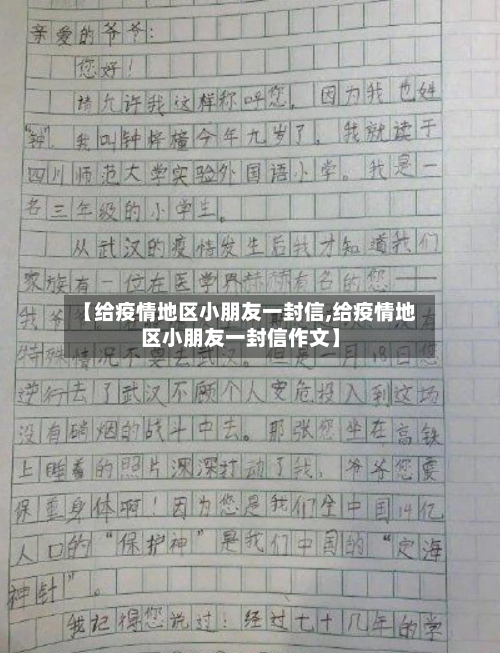 亲爱的爷爷：
您好！
请允许我这样称呼您，因为我也姓
“钟”，我叫钟梓橦今年九岁了，我就读于
四川师范大学实验外国语小学。我是一
名三年级的小学生。
从武汉的疫情发生后我才知道我们
家族有一位在医学界赫赫有名的您——
【给疫情地区小朋友一封信,给疫情地
区小朋友一封信作文】
特殊情况不要去武汉。但是一月18日您
逆行去了武汉不顾个人安危投入到这场
没有硝烟的战斗中去。那张您坐在高铁
上睡着的照片深深打动了我，爷爷您要
保重身体啊！因为您是我们全中国14亿
人口的“保护神”是我们中国的“定海
神针”。
我记得您说过！经过七十几年的学